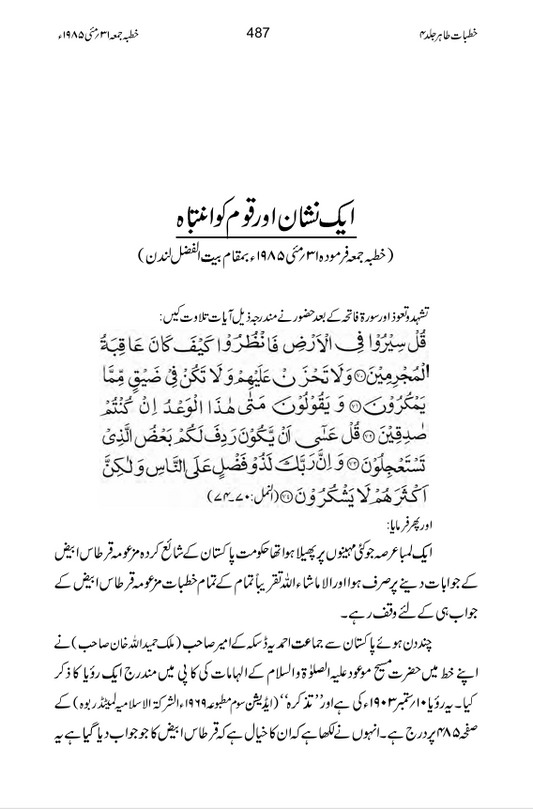 خطبات طاہر جلد۴ 487 خطبہ جمعہ ۳۱؍مئی ۱۹۸۵ء
ایک نشان اور قوم کو انتباہ
(خطبہ جمعہ فرمودہ ۳۱؍مئی ۱۹۸۵ء بمقام بیت الفضل لندن)
تشہد و تعوذ اور سورۃ فاتحہ کے بعد حضور نے مندرجہ ذیل آیات تلاوت کیں:
قُلْ سِیْرُوْا فِی الْاَرْضِ فَانْظُرُوْا کَیْفَ کَانَ عَاقِبَةُ
الْمُجْرِمِیْنَ۝۷۰ وَلَا تَحْزَنْ عَلَیْهِمْ وَلَا تَکُنْ فِیْ ضَیْقٍ مِّمَّا
یَمْکُرُوْنَ۝۷۱ وَ یَقُوْلُوْنَ مَتٰی هٰذَا الْوَعْدُ اِنْ کُنْتُمْ
صٰدِقِیْنَ۝۷۲ قُلْ عَسٰۤی اَنْ یَّکُوْنَ رَدِفَ لَکُمْ بَعْضُ الَّذِیْ
تَسْتَعْجِلُوْنَ۝۷۳ وَ اِنَّ رَبَّكَ لَذُوْ فَضْلٍ عَلَی النَّاسِ وَ لٰکِنَّ
اَکْثَرَهُمْ لَا یَشْکُرُوْنَ۝۷۴ (النمل: ۷۰۔۷۴)
اور پھر فرمایا:
ایک لمبا عرصہ جو کئی مہینوں پر پھیلا ہوا تھا حکومت پاکستان کے شائع کردہ مزعومہ قرطاس ابیض
کے جوابات دینے پر صرف ہوا اور الا ماشاء اللہ تقریباً تمام کے تمام خطبات مزعومہ قرطاس ابیض کے
جواب ہی کے لئے وقف رہے۔
چند دن ہوئے پاکستان سے جماعت احمدیہ ڈسکہ کے امیر صاحب (ملک حمید اللہ خان صاحب) نے
اپنے خط میں حضرت مسیح موعود علیہ الصلوٰۃ والسلام کے الہامات کی کاپی میں مندرج ایک رؤیا کا ذکر
کیا۔ یہ رؤیا ۱۰؍ستمبر ۱۹۰۳ء کی ہے اور ’’تذکرہ‘‘ (ایڈیشن سوم مطبوعہ ۱۹۶۹ء الشرکۃ الاسلامیہ لمیٹڈ ربوہ) کے
صفحہ ۴۸۵ پر درج ہے۔ انہوں نے لکھا ہے کہ ان کا خیال ہے کہ قرطاس ابیض کا جو جواب دیا گیا ہے یہ